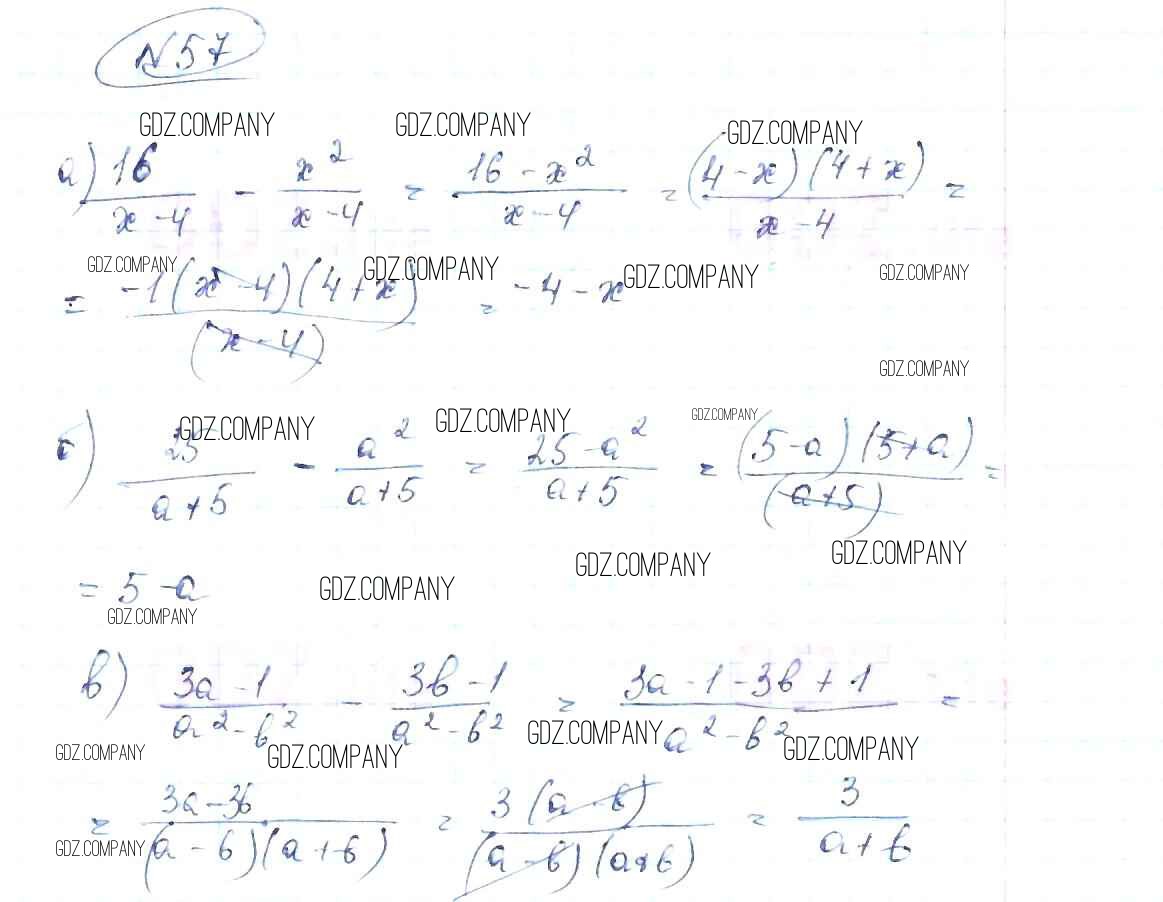 №57
GDZ.COMPANY GDZ.COMPANY GDZ.COMPANY
а) 16/(x-4) - x²/(x-4) = (16-x²)/(x-4) = (4-x)(4+x)/(x-4) =
GDZ.COMPANY GDZ.COMPANY GDZ.COMPANY GDZ.COMPANY
= -1(x-4)(4+x)/(x-4) = -4-x
GDZ.COMPANY
GDZ.COMPANY GDZ.COMPANY GDZ.COMPANY
б) 25/(a+5) - a²/(a+5) = (25-a²)/(a+5) = (5-a)(5+a)/(a+5) =
GDZ.COMPANY GDZ.COMPANY GDZ.COMPANY
= 5-a
GDZ.COMPANY
в) (3a-1)/(a²-b²) - (3b-1)/(a²-b²) = (3a-1-3b+1)/(a²-b²) =
GDZ.COMPANY GDZ.COMPANY GDZ.COMPANY GDZ.COMPANY
= (3a-3b)/((a-b)(a+b)) = 3(a-b)/((a-b)(a+b)) = 3/(a+b)
GDZ.COMPANY